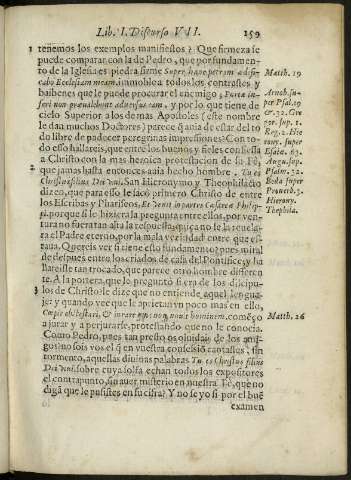 Lib. I. Discurso VII. 159
1 tenemos los exemplos manifiestos? Que firmeza se
puede comparar con la de Pedro, que por fundamen-
to de la Iglesia es piedra firme Super hanc petram ædifi-
cabo Ecclesiam meam, immobles a todos los contrastes y
baibenes que le puede procurar el enemigo, Portæ in-
feri non præualebunt aduersus eam, y por lo que tiene de
cielo Superior a los demas Apostoles (este nombre
le dan muchos Doctores) parece q̃ auia de estar del to
do libre de padecer peregrinas impressiones? Con to-
do esso hallareis, que entre los buenos y fieles confiessa
a Christo con la mas heroica protestacion de su Fè,
2 que jamas hasta entonces auia hecho hombre. Tu es
Christus filius Dei viui. San Hieronymo y Theophilacto
dizen, que para esto le sacó primero Christo de entre
los Escribas y Phariseos, Et venit in partes Cæsareæ Phili-
pi, porque si le hiziera la pregunta entre ellos, por ven-
tura no fueran alta la respuesta, q̃ aca no se la reuela-
ra el Padre eterno, por la mala vezindad entre que es-
taua. Quereis ver si tiene esto fundamento? pues miral
de despues entre los criados de casa del Pontifice, y ha
llareisle tan trocado, que parece otro hombre differẽ
te. A la portera, que le preguntó si era de los discipu-
3 los de Christo le dize que no entiende aquel lengua-
je: y quando vee que le aprietan vn poco mas en ello,
Cœpit detestari, & iurare quia non nouit hominem, començò
a jurar y a perjurarse, protestando que no le conocia.
Como Pedro, pues tan presto os oluidais de los ami-
gos? no sois vos el q̃ en vuestra confession cantastes, sin
tormento, aquellas diuinas palabras Tu es Christus filius
Dei viui, sobre cuya solfa echan todos los expositores
el contrapunto, sin auer misterio en nuestra Fè, que no
digã que le pusistes en su cifra? Y no se yo si por el buẽ
examen
Matth. 19
Arnob. su-
per Psal. 19
& 32. Gre
gor. sup. 1.
Reg. 2. Hie
rony. super
Esaiæ. 63.
Aug. sup.
Psalm. 32.
Beda super
Prouerb. 3.
Hierony.
Theophila.
Matth. 26